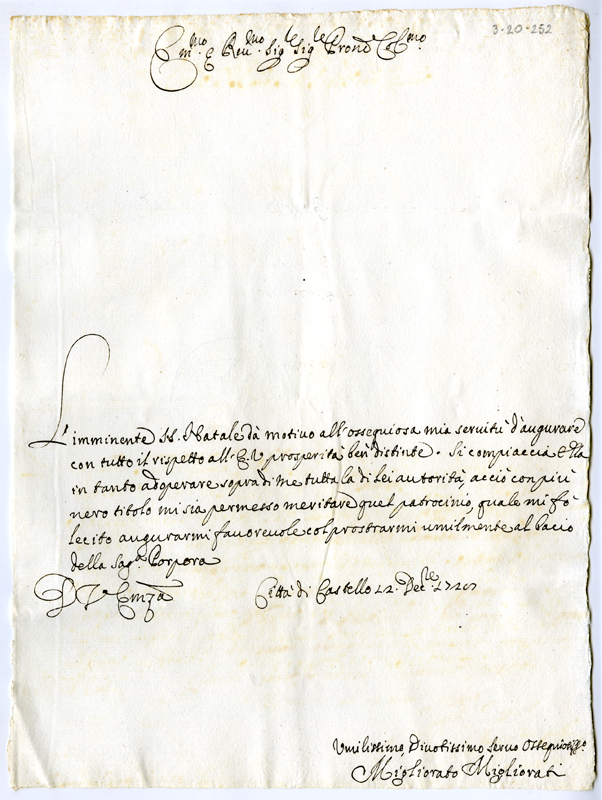 3-20-252
Em.mo e Rev.mo Sig.le Sig.le Prond Col.mo
L'imminente SS. Natale dà motivo all'ossequiosa mia servitù d'augurare
con tutto il rispetto all'E.V prosperità ben distinte. Si compiaccia Ella
in tanto adoperare sopra di me tutta la di Lei autorità, acciò con più
vero titolo mi sia permesso meritare quel patrocinio, quale mi fò
lecito augurarmi favorevole col prostrarmi umilmente al bacio
della Sag.a Porpora
D V Emza
Città di Castello 22. Dec.le
Umilissimo, Divotissimo Servo
Migliorato Migliorati